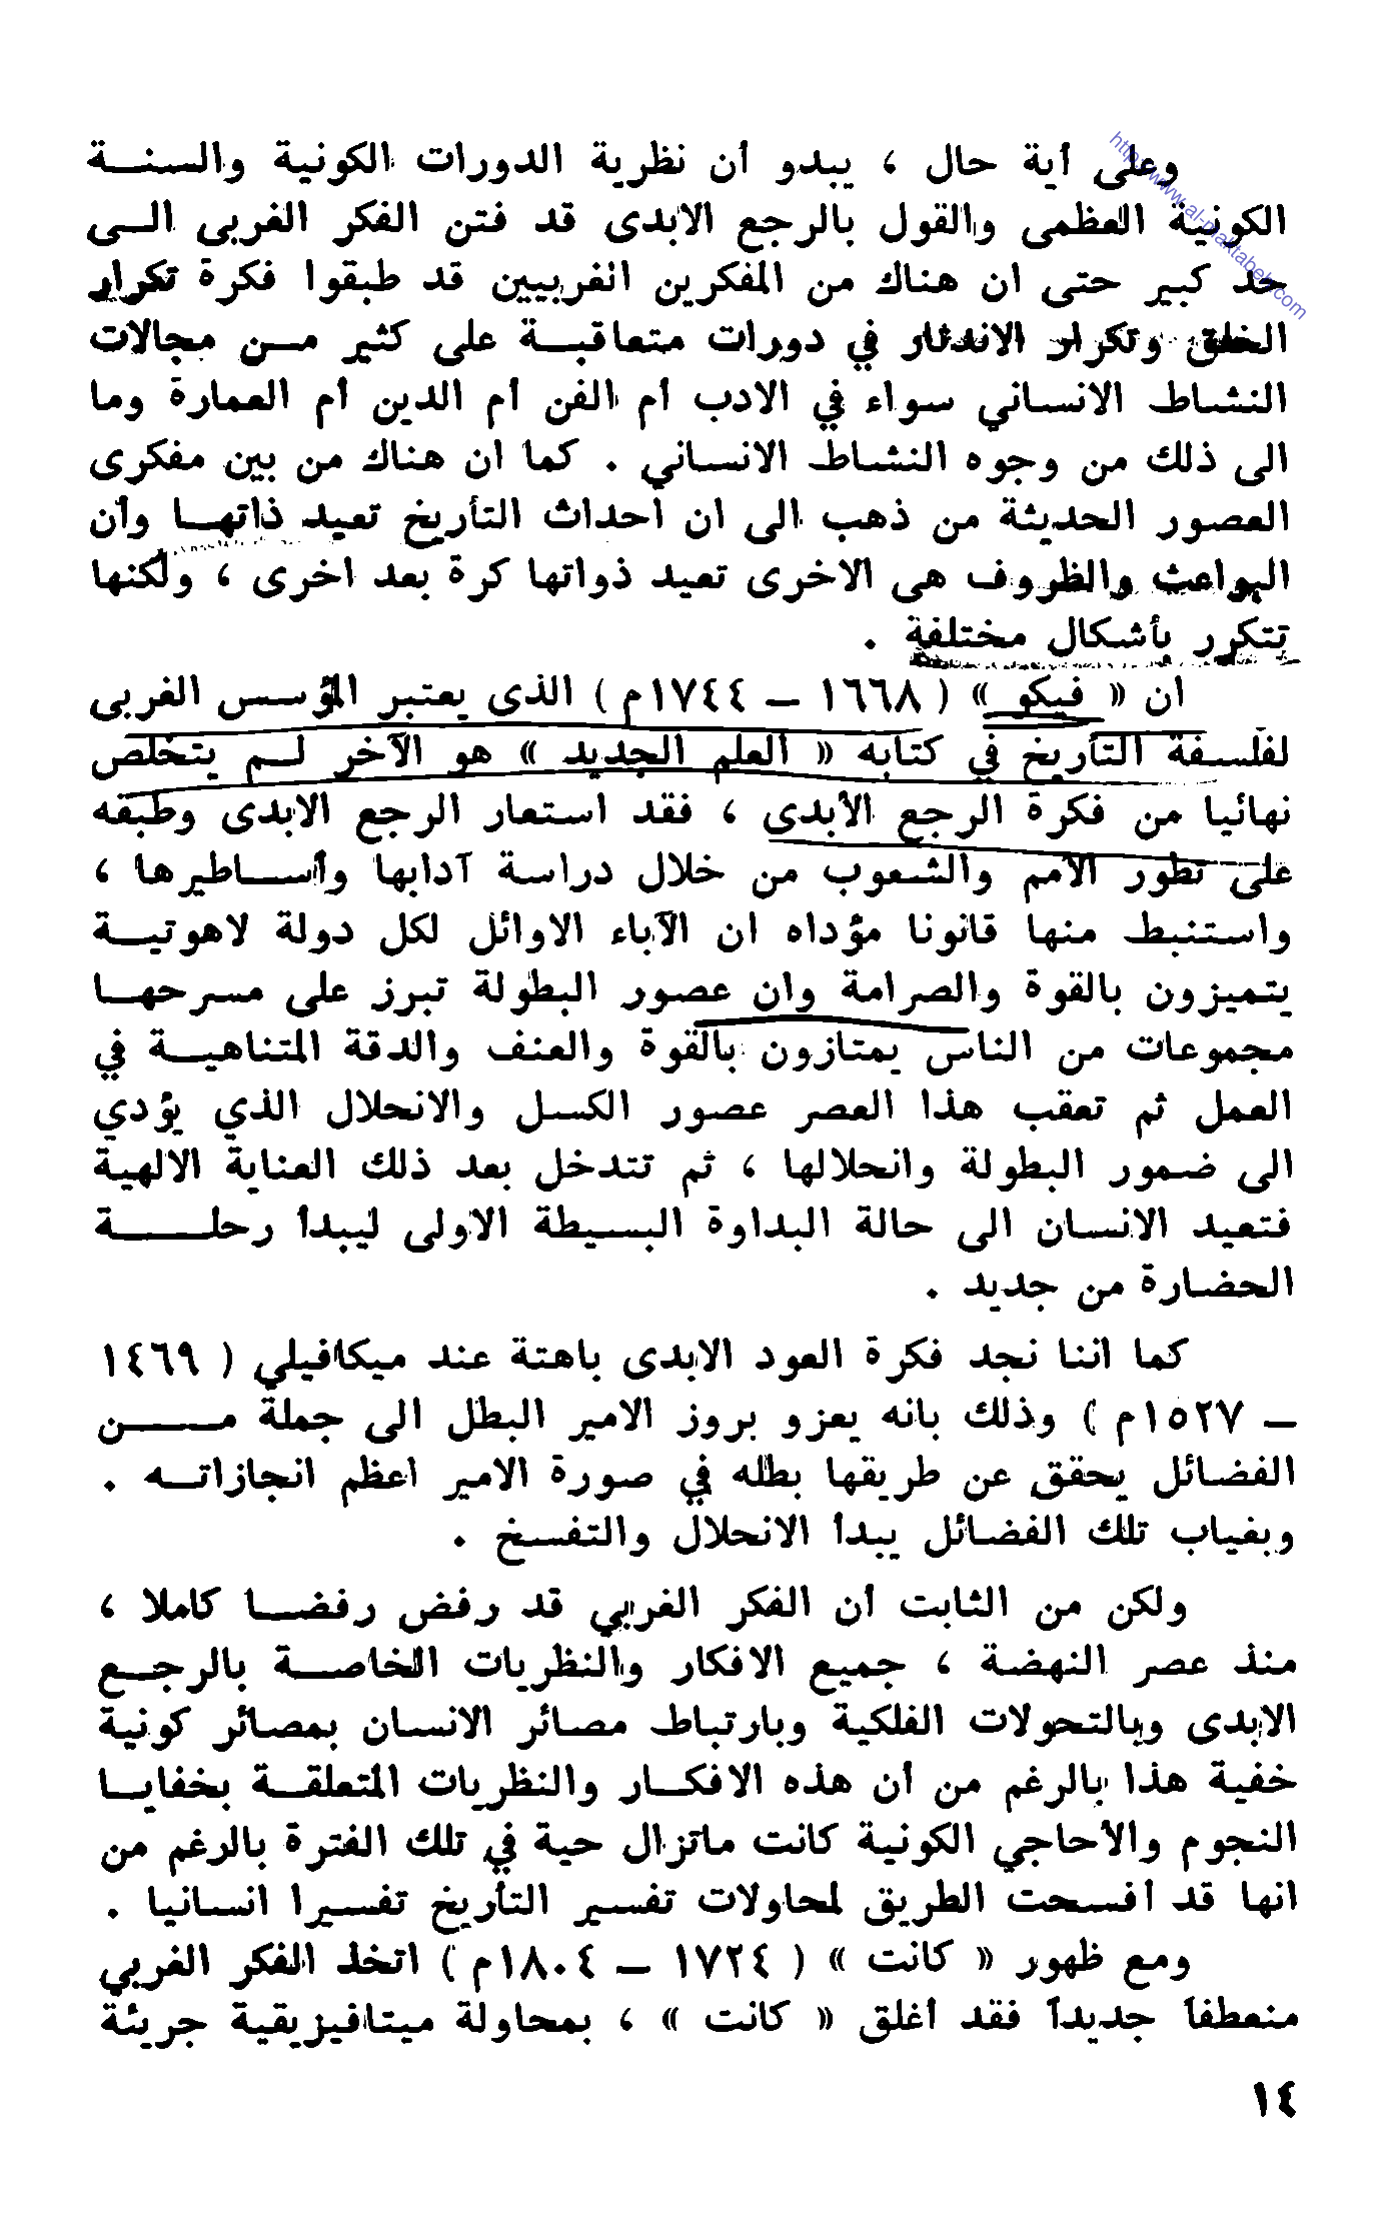 وعلى أية حال ، يبدو أن نظرية الدورات الكونية والسنة
الكونية العظمى والقول بالرجع الابدى قد فتن الفكر الغربى الى
حد كبير حتى ان هناك من المفكرين الغربيين قد طبقوا فكرة تكرار
الخلق وتكرار الاندثار في دورات متعاقبة على كثير من مجالات
النشاط الانساني سواء في الادب أم الفن أم الدين أم العمارة وما
الى ذلك من وجوه النشاط الانساني . كما ان هناك من بين مفكرى
العصور الحديثة من ذهب الى ان أحداث التأريخ تعيد ذاتها وأن
البواعث والظروف هى الاخرى تعيد ذواتها كرة بعد اخرى ، ولكنها
تتكرر بأشكال مختلفة .
ان « فيكو » ( ١٦٦٨ – ١٧٤٤م ) الذى يعتبر المؤسس الغربى
لفلسفة التأريخ في كتابه « العلم الجديد » هو الآخر لم يتخلص
نهائيا من فكرة الرجع الأبدى ، فقد استعار الرجع الابدى وطبقه
على تطور الامم والشعوب من خلال دراسة آدابها وأساطيرها ،
واستنبط منها قانونا مؤداه ان الآباء الاوائل لكل دولة لاهوتية
يتميزون بالقوة والصرامة وان عصور البطولة تبرز على مسرحها
مجموعات من الناس يمتازون بالقوة والعنف والدقة المتناهية في
العمل ثم تعقب هذا العصر عصور الكسل والانحلال الذي يؤدي
الى ضمور البطولة وانحلالها ، ثم تتدخل بعد ذلك العناية الالهية
فتعيد الانسان الى حالة البداوة البسيطة الاولى ليبدأ رحلة
الحضارة من جديد .
كما اننا نجد فكرة العود الابدى باهتة عند ميكافيلي ( ١٤٦٩
– ١٥٢٧م ) وذلك بانه يعزو بروز الامير البطل الى جملة من
الفضائل يحقق عن طريقها بطله في صورة الامير اعظم انجازاته .
وبغياب تلك الفضائل يبدأ الانحلال والتفسخ .
ولكن من الثابت أن الفكر الغربي قد رفض رفضا كاملا ،
منذ عصر النهضة ، جميع الافكار والنظريات الخاصة بالرجع
الابدى وبالتحولات الفلكية وبارتباط مصائر الانسان بمصائر كونية
خفية هذا بالرغم من أن هذه الافكار والنظريات المتعلقة بخفايا
النجوم والأحاجي الكونية كانت ماتزال حية في تلك الفترة بالرغم من
انها قد أفسحت الطريق لمحاولات تفسير التأريخ تفسيرا انسانيا .
ومع ظهور « كانت » ( ١٧٢٤ – ١٨٠٤م ) اتخذ الفكر الغربي
منعطفاً جديداً فقد أغلق « كانت » ، بمحاولة ميتافيزيقية جريئة
١٤
http://www.al-maktabeh.com